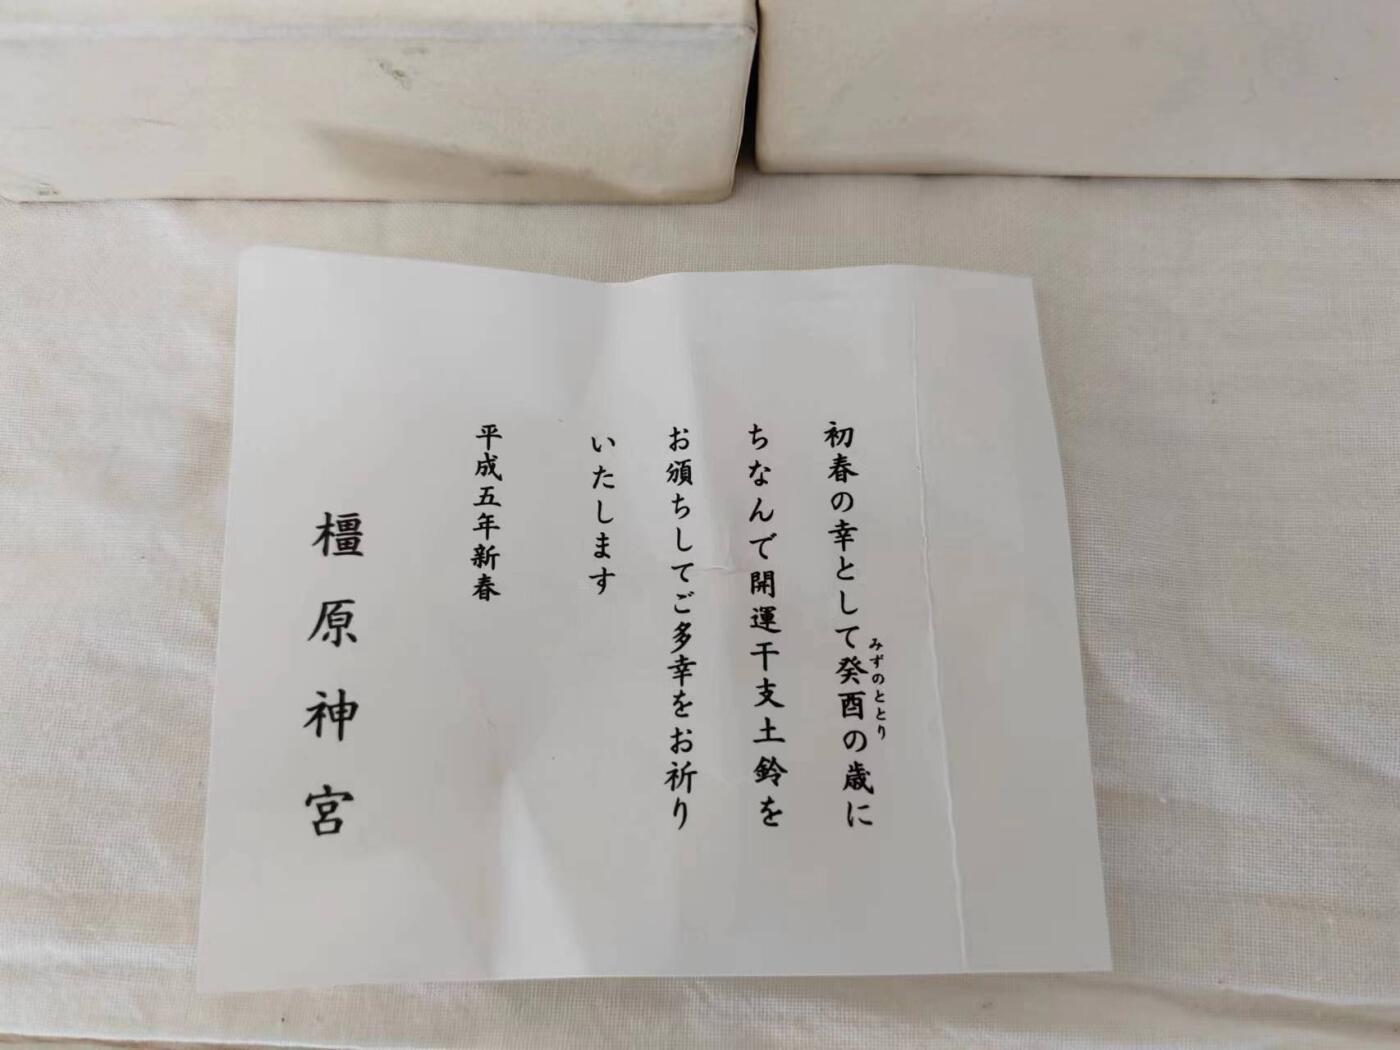 初春の幸として癸酉の歳に
みずのととり
ちなんで開運干支土鈴を
お頒ちしてご多幸をお祈り
いたします
平成五年新春
橿原神宮